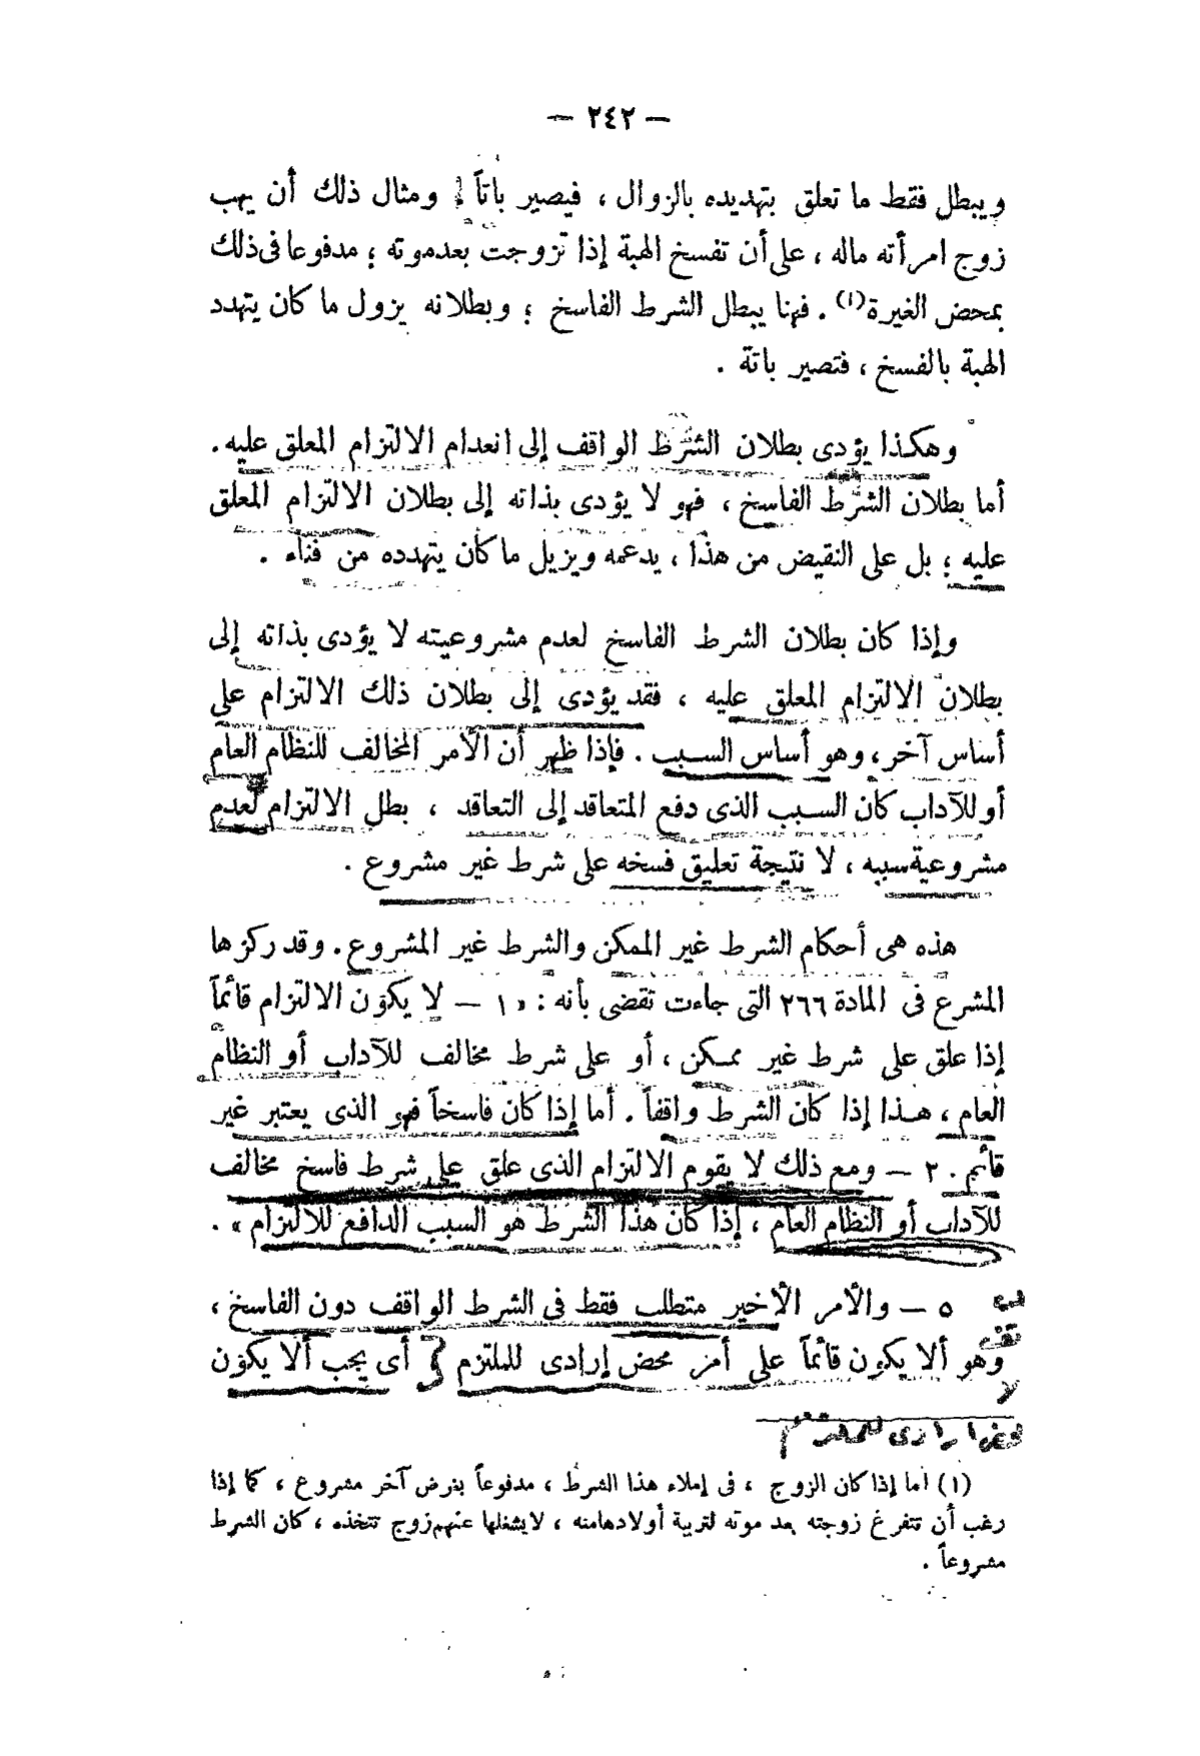 — ٢٤٢ —
ويبطل فقط ما تعلق بتهديده بالزوال ، فيصير باتاً ! ومثال ذلك أن يهب
زوج امرأته ماله ، على أن تفسخ الهبة إذا تزوجت بعدموته ؛ مدفوعا فى ذلك
بمحض الغيرة(١) . فهنا يبطل الشرط الفاسخ ؛ وبطلانه يزول ما كان يتهدد
الهبة بالفسخ ، فتصير باتة .
وهكذا يؤدى بطلان الشرط الواقف إلى انعدام الالتزام المعلق عليه .
أما بطلان الشرط الفاسخ ، فهو لا يؤدى بذاته إلى بطلان الالتزام المعلق
عليه ؛ بل على النقيض من هذا ، يدعمه ويزيل ما كان يتهدده من فناء .
وإذا كان بطلان الشرط الفاسخ لعدم مشروعيته لا يؤدى بذاته إلى
بطلان الالتزام المعلق عليه ، فقد يؤدى إلى بطلان ذلك الالتزام على
أساس آخر ، وهو أساس السبب . فإذا ظهر أن الأمر المخالف للنظام العام
أو للآداب كان السبب الذى دفع المتعاقد إلى التعاقد ، بطل الالتزام لعدم
مشروعية سببه ، لا نتيجة تعليق فسخه على شرط غير مشروع .
هذه هى أحكام الشرط غير الممكن والشرط غير المشروع . وقد ركزها
المشرع فى المادة ٢٦٦ التى جاءت تقضى بأنه : « ١ — لا يكون الالتزام قائماً
إذا علق على شرط غير ممكن ، أو على شرط مخالف للآداب أو النظام
العام ، هذا إذا كان الشرط واقفاً . أما إذا كان فاسخاً فهو الذى يعتبر غير
قائم . ٢ — ومع ذلك لا يقوم الالتزام الذى علق على شرط فاسخ مخالف
للآداب أو النظام العام ، إذا كان هذا الشرط هو السبب الدافع للالتزام » .
٥ — والأمر الأخير متطلب فقط فى الشرط الواقف دون الفاسخ ،
وهو ألا يكون قائماً على أمر محض إرادى للملتزم ؛ أى يجب ألا يكون
(١) أما إذا كان الزوج ، فى إملاء هذا الشرط ، مدفوعاً بغرض آخر مشروع ، كما إذا
رغب أن تتفرغ زوجته بعد موته لتربية أولادهامنه ، لايشغلها عنهم زوج تتخذه ، كان الشرط
مشروعاً .